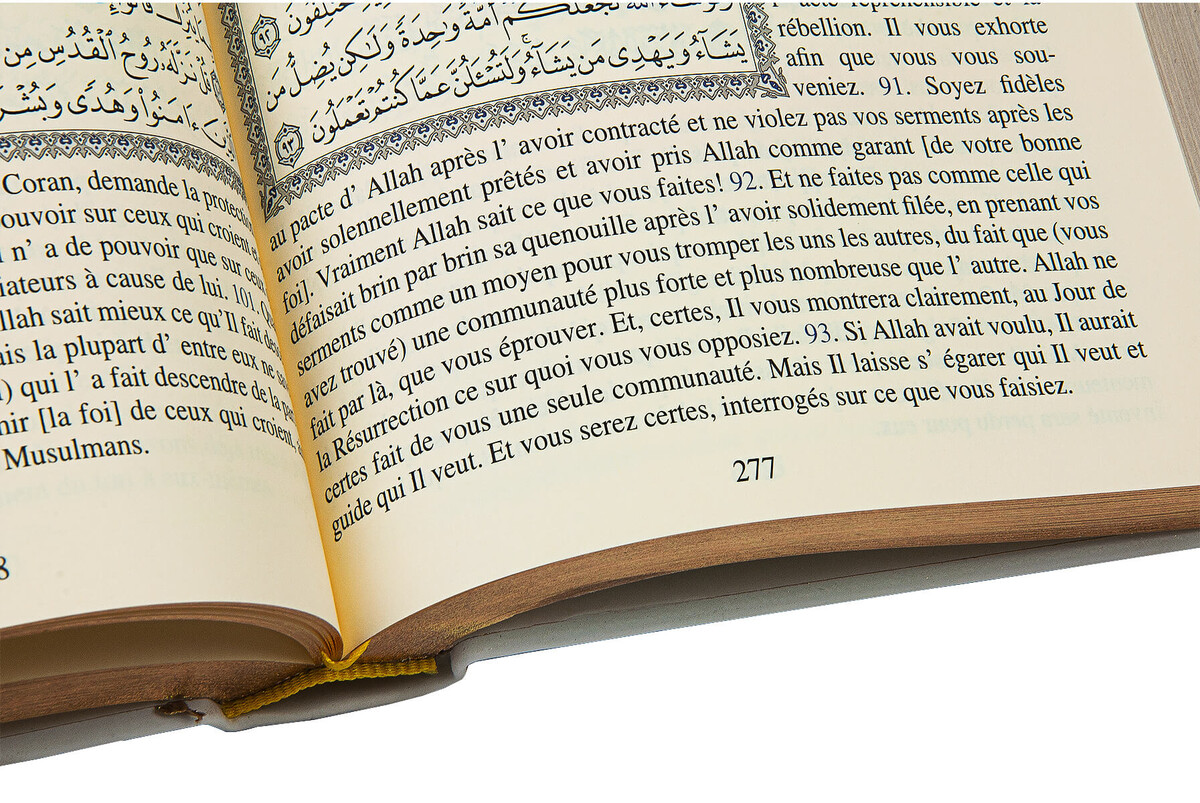 وَلَوْ شَاءَ اللَّهُ لَجَعَلَكُمْ أُمَّةً وَاحِدَةً وَلَٰكِن يُضِلُّ مَن
يَشَاءُ وَيَهْدِى مَن يَشَاءُ وَلَتُسْـَٔلُنَّ عَمَّا كُنتُمْ تَعْمَلُونَ ٩٣
rébellion. Il vous exhorte
afin que vous vous sou-
veniez. 91. Soyez fidèles
au pacte d’ Allah après l’ avoir contracté et ne violez pas vos serments après les
avoir solennellement prêtés et avoir pris Allah comme garant [de votre bonne
foi]. Vraiment Allah sait ce que vous faites! 92. Et ne faites pas comme celle qui
défaisait brin par brin sa quenouille après l’ avoir solidement filée, en prenant vos
serments comme un moyen pour vous tromper les uns les autres, du fait que (vous
avez trouvé) une communauté plus forte et plus nombreuse que l’ autre. Allah ne
fait par là, que vous éprouver. Et, certes, Il vous montrera clairement, au Jour de
la Résurrection ce sur quoi vous vous opposiez. 93. Si Allah avait voulu, Il aurait
certes fait de vous une seule communauté. Mais Il laisse s’ égarer qui Il veut et
guide qui Il veut. Et vous serez certes, interrogés sur ce que vous faisiez.
277
نَزَّلَهُ رُوحُ الْقُدُسِ مِن
ءَامَنُوا وَهُدًى وَبُشْرَ
Coran, demande la protect
ouvoir sur ceux qui croient
n’ a de pouvoir que sur ceux
iateurs à cause de lui. 101.
llah sait mieux ce qu’Il fait des
is la plupart d’ entre eux ne
) qui l’ a fait descendre de la
nir [la foi] de ceux qui croient,
Musulmans.
8